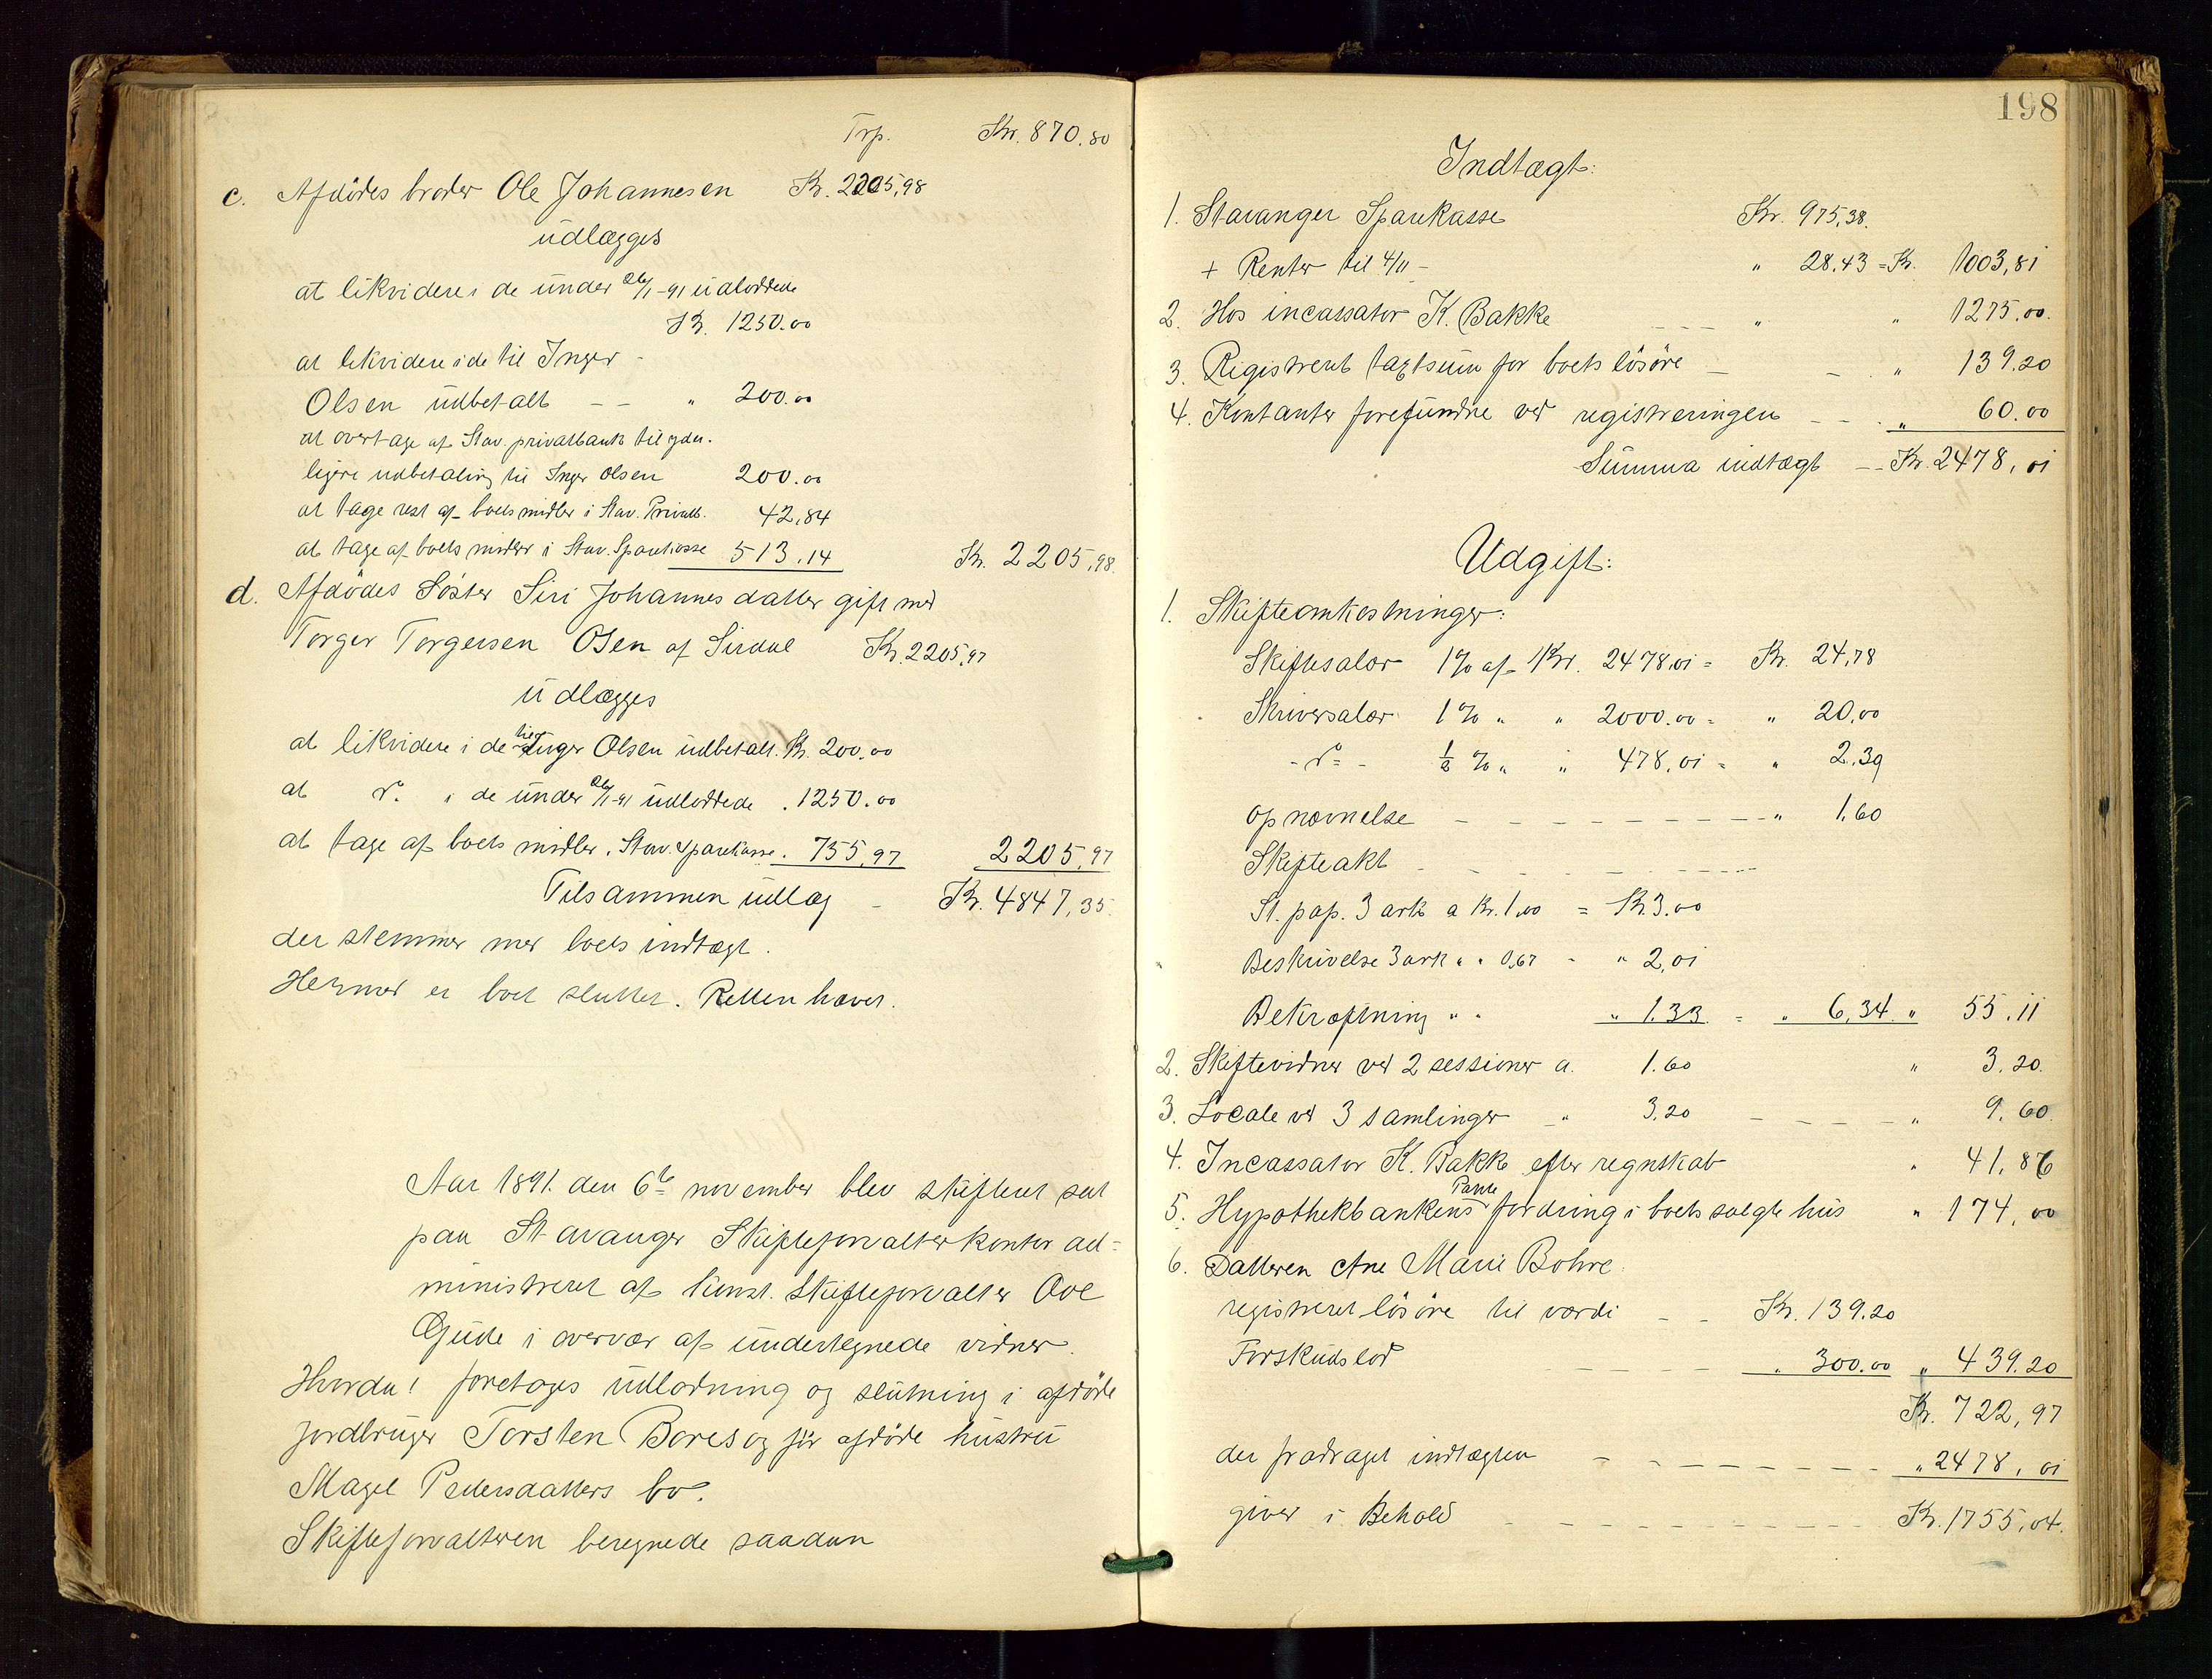 Trp. Kr. 870.80
c. Afdödes broder Ole Johannesen Kr. 2205,98
udlægges
at likvidere i de under 26/1-91 udloddede
Kr. 1250.00
at likvidere i de til Inger
Olsen udbetalt — — " 200.00
at overtage af Stav. privatbank til yder-
ligere udbetaling til Inger Olsen 200.00
at tage rest af boets midler i Stav. Privatb. 42,84
at tage af boets midler i Stav. Sparekasse 513,14 Kr. 2205,98.
d. Afdödes Söster Siri Johannesdatter gift med
Torger Torgersen Osen af Sirdal Kr. 2205,97
udlægges
at likvidere i de til Inger Olsen udbetalt. Kr. 200.00
at do. i de under 26/1-91 udloddede . 1250.00
at tage af boets midler i Stav. Sparekasse. 755,97 2205,97
Tilsammen udlæg - Kr. 4847,35.
der stemmer med boets indtægt.
Hermed er boet sluttet. Retten hævet.
Aar 1891. den 6te november blev skifteret sat
paa Stavanger Skifteforvalterkontor ad-
ministreret af konst. Skifteforvalter Ove
Gude i overvær af undertegnede vidner.
Hvorda! foretoges udlodning og slutning i afdöde
jordbruger Torsten Bores og för afdöde hustru
Magel Pedersdatters bo.
Skifteforvalteren beregnede saadan
198
Indtægt:
1. Stavanger Sparekasse Kr. 975,38.
+ Renter til 4/11 - " 28.43 = Kr. 1003,81
2. Hos incassator K. Bakke - - - " " 1275.00.
3. Registreret taxtsum for boets lösöre — - . " 139.20
4. Kontanter forefundne ved registreringen - - . " 60.00
Summa indtægt — Kr. 2478,01
Udgift:
1. Skifteomkostninger:
Skiftesalær 1% af Kr. 2478,01 = Kr. 24,78
Skriversalær 1% " " 2000.00 = " 20,00
- do - ½ % " " 478,01 = " 2.39
opnævnelse - - - - - - - - - - " 1.60
Skifteakt - - - - - - - - -
St. pap. 3 ark a Kr. 1,00 = Kr. 3.00
Beskrivelse 3 ark " " 0,67 - " 2,01
Bekræftning " " " 1.33 = " 6,34 " 55.11
2. Skiftevidner ved 2 sessioner a. 1.60 " 3.20.
3. Locale ved 3 samlinger " 3.20 - - - - " 9.60.
4. Incassator K. Bakke efter regnskab " 41.86
5. Hypothekbankens Pante fordring i boets solgte hus " 174,00
6. Datteren Ane Marie Bohre
registreret lösöre til værdi - - Kr. 139.20
Forskudslod - - - - - " 300.00 " 439.20
Kr. 722,97
der fradraget indtægten - - - - - - - - " 2478,01
giver i Behold - - - - - - - - - - Kr. 1755,04.